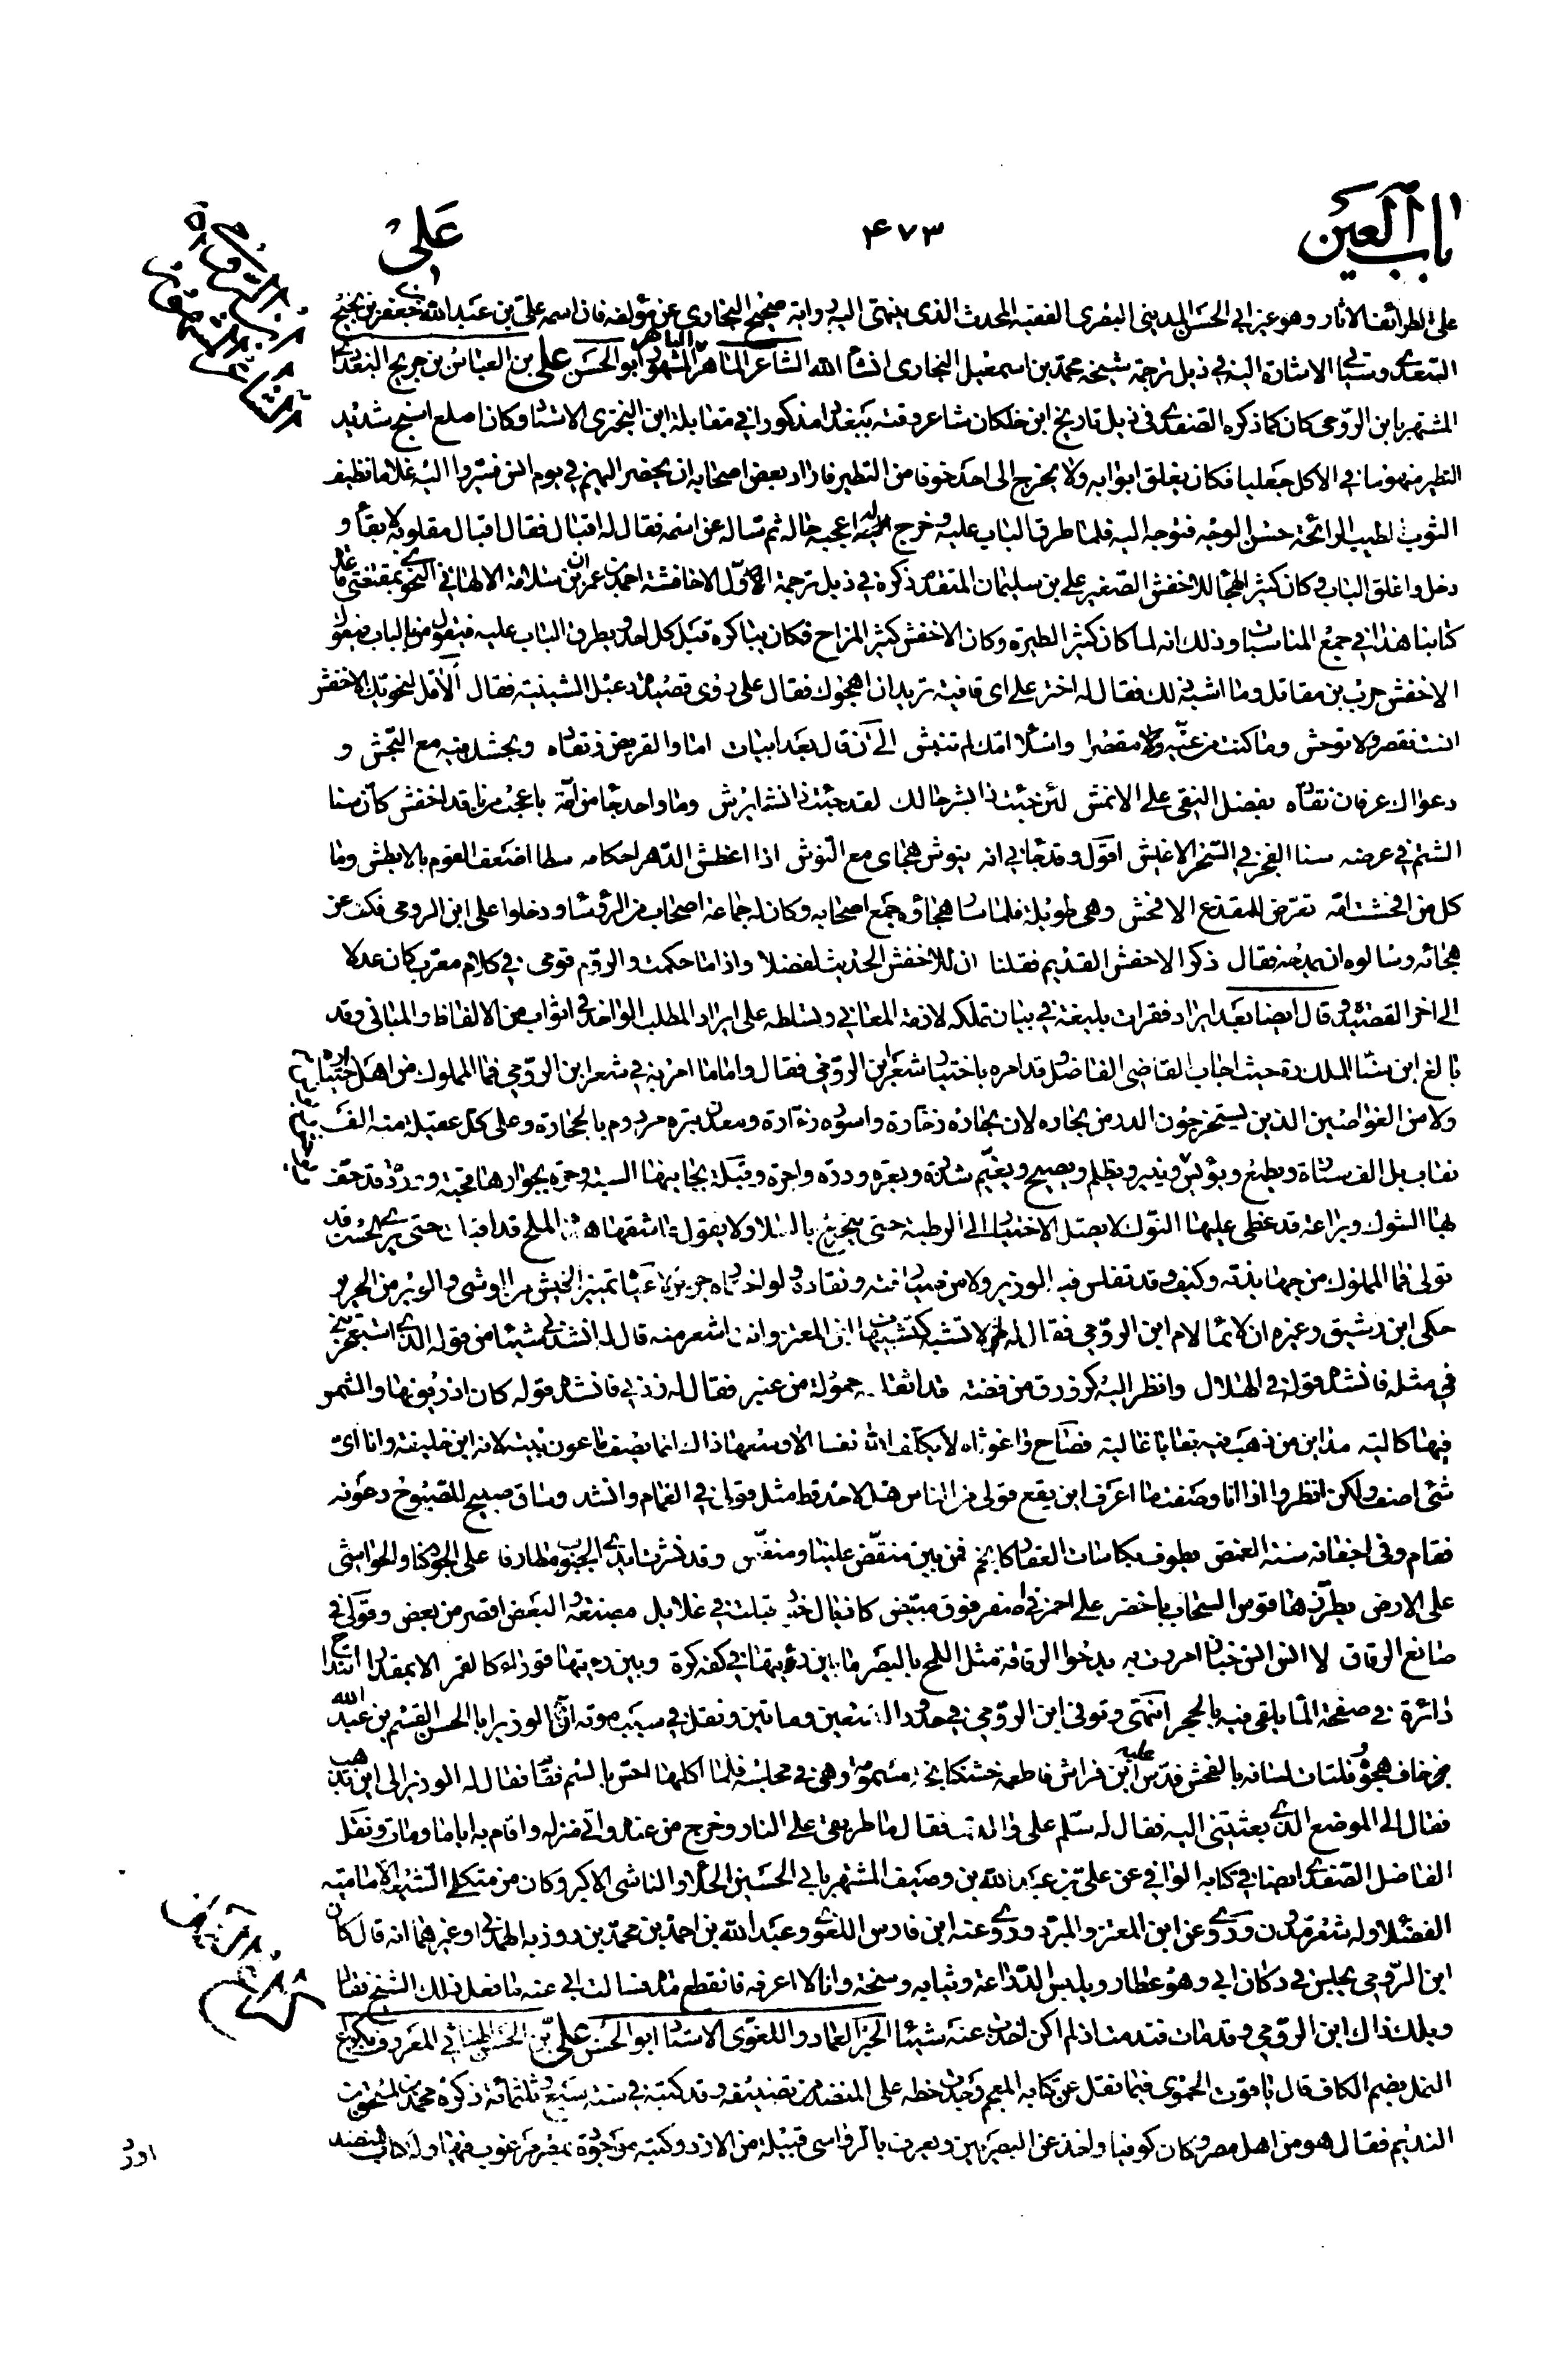 باب العين
٤٧٣
على
على الطرائف الاثار وهو غير ابي الحسن المديني البصرى الفقيه المحدث الذى ينتهى اليه رواية صحيح البخارى عن مؤلفه فان اسمه على بن عبد الله بن جعفر بن نجيح
السعدى وستاتي الاشارة اليه في ذيل ترجمة شيخه محمد بن اسمعيل البخارى انشاء الله الشاعر الماهر الباهر المشهور ابو الحسن على بن العباس بن جريج البغدادى
المشتهر بابن الرومى كان كما ذكره الصفدى فى ذيل تاريخ ابن خلكان شاعر وقته ببغداد مذكورا في مقابلة ابن البخترى الاستاد وكان اصلع اسبج شديد
التطير منهوما في الاكل جعليا فكان يغلق ابوابه ولا يخرج الى احد خوفا من التطير فاراد بعض اصحابه ان يحضر اليهم في يوم انس فسيروا اليه غلاما نظيف
الثوب طيب الرائحة حسن الوجه فتوجه اليه فلما طرق الباب عليه وخرج اليه اعجبه حاله ثم ساله عن اسمه فقال له اقبال فقال اقبال مقلوبه لا بقا و
دخل واغلق الباب وكان كثير الهجاء للاخفش الصغير على بن سليمان المتقدم ذكره في ذيل ترجمة الاول الاخافشة احمد بن عمران بن سلامة الالهاني النحوى بمقتضى قاعدة
كتابنا هذا في جميع المناسبات وذلك انه لما كان كثير الطيرة وكان الاخفش كثير المزاح فكان يباكره قبل كل احد ويطرق الباب عليه فيقول من بالباب فيقول
الاخفش حرب بن مقاتل وما اشبه ذلك فقال له اختر على اى قافية تريد ان اهجوك فقال على روى قصيدة دعبل الشينية فقال ألا قل لنحويك الاخفش
انست فقصر ولا توحش وما كنت من غيّه مقصرا واشلاء امّك لم تنبش الى ان قال بعد ابيات اما والقريض ونقاده وبحشك فيه مع البحّش و
دعواك عرفان نقاده بفضل النقى على الانمش لئن جئت ذا بشر حالك لقد جئت ذا نسب ابرش وما واحد جا من امّة باعجب من ناقد اخفش كان سنا
الشتم في عرضه سنا الفجر في السحر الاغبش اقول وقد جاني انه ينوش هجاى مع النوش اذا اغطش الدهر احكامه سطا اضعف القوم بالابطش وما
كل من افحشت امّه تعرض للمقذع الافحش وهى طويلة فلما سار هجاؤه جمع اصحابه وكان له جماعة اصحاب من الرؤسا ودخلوا على ابن الرومى فكف عن
هجائه وسالوه ان يمدحه فقال ذكر الاخفش القديم فقلنا ان للاخفش الحديث لفضلا واذا ما حكمت والروم قومى في كلام معرّب كان عدلا
الى اخر القصيدة وقال ايضا بعد ايراد فقرات بليغة في بيان تملكه لازمّة المعاني وتسلطه على ايراد المطلب الواحد في اثواب من الالفاظ والمبانى وقد
بالغ ابن سنا الملك ره حيث اجاب القاضى الفاضل وقد امره باختيار شعر ابن الرومى فقال واما ما امر به في شعر ابن الرومى فما المملوك من اهل اختياره
ولا من الغواصين الذين يستخرجون الدر من بحاره لان بحاره زخارة واسوده زءارة ومعدن تبره مردوم بالحجارة وعلى كل عقيلة منه الف
نقاب بل الف ستارة ويطمع ويؤيس وينير ويظلم ويصيح ويغيّم شذره وبعره ودره واجره وقبلة بجانبها السبة وحرة بجوارها قحبة ووردة قد حف
بها الشوك وبراعة قد غطى عليها النوك لا يصل الاختيار الى الرطبة حتى يخرج بالسلا ولا يقول عاشقها هذا الملح قد اقبل حتى يرى الحسن قد
تولى فما المملوك من جهابذته وكيف وقد تفلس فيه الوزير ولا من صيارفته ونقاده ولو اختاره جرير لاعياه تمييز الخيش من الوشى والوبر من الحرير
حكى ابن رشيق وغيره ان لائما لام ابن الرومى فقال له لم لا تشبه كتشبيهات ابن المعتز وانت اشعر منه قال له انشدنى شيئا من قوله الذى استعجزتني
في مثله فانشده قوله في الهلال وانظر اليه كزورق من فضة قد اثقلته حمولة من عنبر فقال له زدني فانشده قوله كان اذريونها والشمس
فيها كاليه مداهن من ذهب فيه بقايا غاليه فصاح واغوثاه لا يكلف الله نفسا الا وسعها ذاك انما يصف ماعون بيته لانه ابن خليفة وانا اىّ
شئ اصف ولكن انظروا اذا انا وصفت ما اعرف اين يقع قولى من الناس هل لاحد قط مثل قولى في الغمام وانشد وساق صبيح للصبوح دعوته
فقام وفى اجفانه سنة الغمض يطوف بكاسات العقار كانجم فمن بين منقض علينا ومنفضّ وقد نشرت ايدى الجنوب مطارفا على الجو دكنا والحواشى
على الارض يطرّزها قوس السحاب باخضر على احمر في اصفر فوق مبيض كاذيال خود اقبلت في غلايل مصبغة والبعض اقصر من بعض وقولى في
صانع الرقاق لا انس لا انس خبازا مررت به يدحوا الرقاقة مثل اللمح بالبصر ما بين رؤيتها في كفه كرة وبين رؤيتها قوراء كالقمر الا بمقدار ما تنداح
دائرة في صفحة الماء يلقى فيه بالحجر انتهى وتوفى ابن الرومى في حدود التسعين ومأتين ونقل في سبب موته ان الوزير ابا الحسن القسم بن عبيد الله
خاف هجوه وفلتات لسانه بالفحش فدس عليه ابن فراش فاطعمه خشكنانجة مسمومة وهى في مجلسه فلما اكلها احس بالسم فقام فقال له الوزير الى اين تذهب
فقال الى الموضع الذى بعثتنى اليه فقال له سلّم على والدى فقال ما طريقى على النار وخرج من عنده واتى منزله واقام به اياما ومات ونقل
الفاضل الصفدى ايضا في كتابه الوافي عن على بن عبد الله بن وصيف المشتهر بابي الحسين الحلاء والناشى الاكبر وكان من متكلمى الشيعة الامامية
الفضلاء وله شعر مدون وروى عن ابن المعتز والمبرد وروى عنه ابن فارس اللغوى وعبد الله بن احمد بن محمد بن روزبه الهمدانى وغيرهما انه قال كان
ابن الرومى يجلس في دكان ابي وهو عطار ويلبس الدرّاعة وثيابه وسخة وانا لا اعرفه فانقطع مدة فسالت ابي عنه ما فعل ذلك الشيخ فقال
ويلك ذاك ابن الرومى وقد مات فندمت اذ لم اكن اخذت عنه شيئا الحبر العماد واللغوى الاستاد ابو الحسن على بن الحسن الهنائي المعروف بكراع
النمل بضم الكاف قال ياقوت الحموى فيما نقل عن كتابه المعجم وجدت خطه على المنضد من تصنيفه وقد كتبه في سنة سبع وثلثمائة ذكره محمد بن اسحق
النديم فقال هو من اهل مصر وكان كوفيا واخذ عن البصريين ويعرف بالرواسى قبيلة من الازد وكتبه موجودة بمصر مرغوب فيها وله كتاب المنضد
اورد